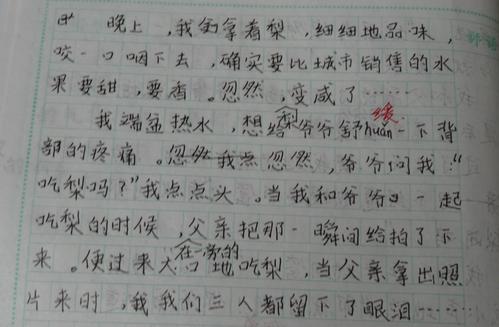 晚上，我拿着梨，细细地品味，
咬一口咽下去，确实要比城市销售的水
果要甜，要香。忽然，变咸了……
我端盆热水，想给爷爷舒huǎn缓一下背
部的疼痛。忽然我点忽然，爷爷问我："
吃梨吗？"我点点头。当我和爷爷口一起
吃梨的时候，父亲把那一瞬间给拍了下
来。便过来在一旁的大口地吃梨，当父亲拿出照
片来时，我我们三人都留下了眼泪……